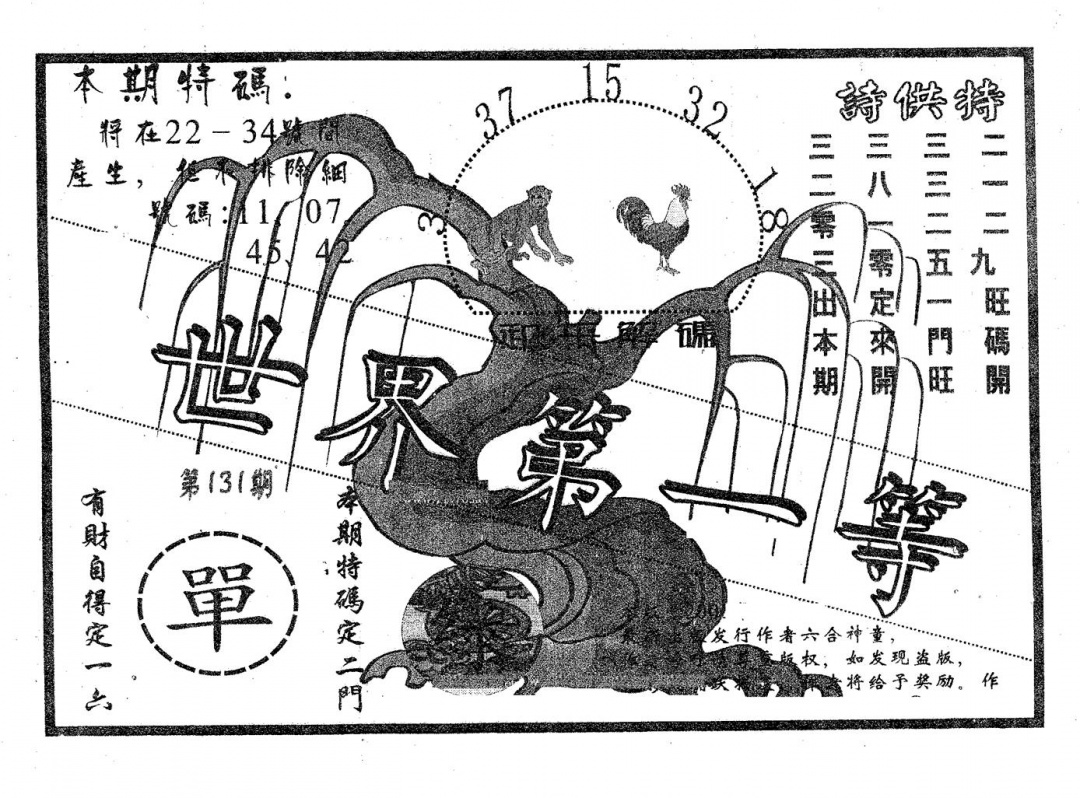 本期特碼:
將在22-34號間
產生,但不排除細
號碼:11、07、
45、42
37 15 32
18
特供詩
二一二九旺碼開
三三二五一門旺
三八一零定來開
三二零三出本期
解碼
世界第一等
第131期
有財自得定一六
單
本期特碼定二門
发行作者六合神童,
版权,如发现盗版,
将给予奖励。作